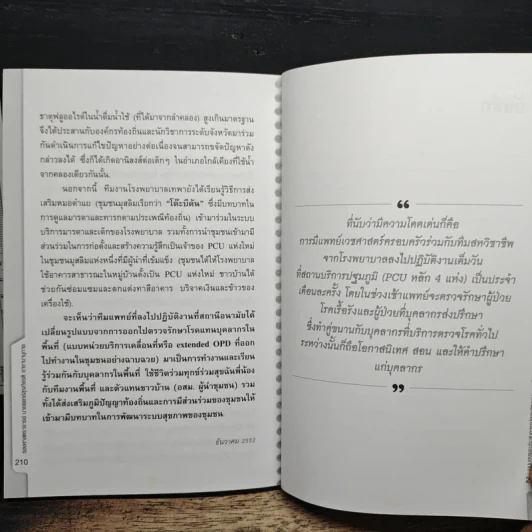 ธาตุฟลูออไรด์ในน้ำดื่มน้ำใช้ (ที่ได้มาจากลำคลอง) สูงเกินมาตรฐาน
จึงได้ประสานกับองค์กรท้องถิ่นและนักวิชาการระดับจังหวัดมาร่วม
กันดำเนินการแก้ไขปัญหาอย่างต่อเนื่องจนสามารถขจัดปัญหาดัง
กล่าวลงได้ ซึ่งก็ได้เกิดอานิสงส์ต่อเด็กๆ ในอำเภอใกล้เคียงที่ใช้น้ำ
จากคลองเดียวกันนั้น
นอกจากนี้ ทีมงานโรงพยาบาลเทพายังได้เรียนรู้วิธีการส่ง
เสริมหมอตำแย (ชุมชนมุสลิมเรียกว่า "โต๊ะบีดัน" ซึ่งมีบทบาทใน
การดูแลมารดาและทารกตามประเพณีท้องถิ่น) เข้ามาร่วมในระบบ
บริการมารดาและเด็กของโรงพยาบาล รวมทั้งการนำชุมชนเข้ามามี
ส่วนร่วมในการก่อตั้งและสร้างความรู้สึกเป็นเจ้าของ PCU แห่งใหม่
ในชุมชนมุสลิมแห่งหนึ่งที่มีผู้นำที่เข้มแข็ง (ชุมชนได้ให้โรงพยาบาล
ใช้อาคารสาธารณะในหมู่บ้านตั้งเป็น PCU แห่งใหม่ ชาวบ้านได้
ช่วยกันซ่อมแซมและตกแต่งทาสีอาคาร บริจาคเงินและข้าวของ
เครื่องใช้)
จะเห็นว่าทีมแพทย์ที่ลงไปปฏิบัติงานที่สถานีอนามัยได้
เปลี่ยนรูปแบบจากการออกไปตรวจรักษาโรคแทนบุคลากรใน
พื้นที่ (แบบหน่วยบริการเคลื่อนที่หรือ extended OPD ที่ออก
ไปทำงานในชุมชนอย่างฉาบฉวย) มาเป็นการทำงานและเรียน
รู้ร่วมกันกับบุคลากรในพื้นที่ ใช้ชีวิตร่วมทุกข์ร่วมสุขฉันพี่น้อง
กับทีมงานพื้นที่ และตัวแทนชาวบ้าน (อสม. ผู้นำชุมชน) รวม
ทั้งได้ส่งเสริมภูมิปัญญาท้องถิ่นและการมีส่วนร่วมของชุมชนให้
เข้ามามีบทบาทในการพัฒนาระบบสุขภาพของชุมชน
ธันวาคม 2552
210
“
ที่นับว่ามีความโดดเด่นก็คือ
การมีแพทย์เวชศาสตร์ครอบครัวร่วมกับทีมสหวิชาชีพ
จากโรงพยาบาลลงไปปฏิบัติงานเต็มวัน
ที่สถานบริการปฐมภูมิ (PCU หลัก 4 แห่ง) เป็นประจำ
เดือนละครั้ง โดยในช่วงเช้าแพทย์จะตรวจรักษาผู้ป่วย
โรคเรื้อรังและผู้ป่วยที่บุคลากรส่งปรึกษา
ซึ่งทำคู่ขนานกับบุคลากรที่บริการตรวจโรคทั่วไป
ระหว่างนั้นก็คือโอกาสนิเทศ สอน และให้คำปรึกษา
แก่บุคลากร
”